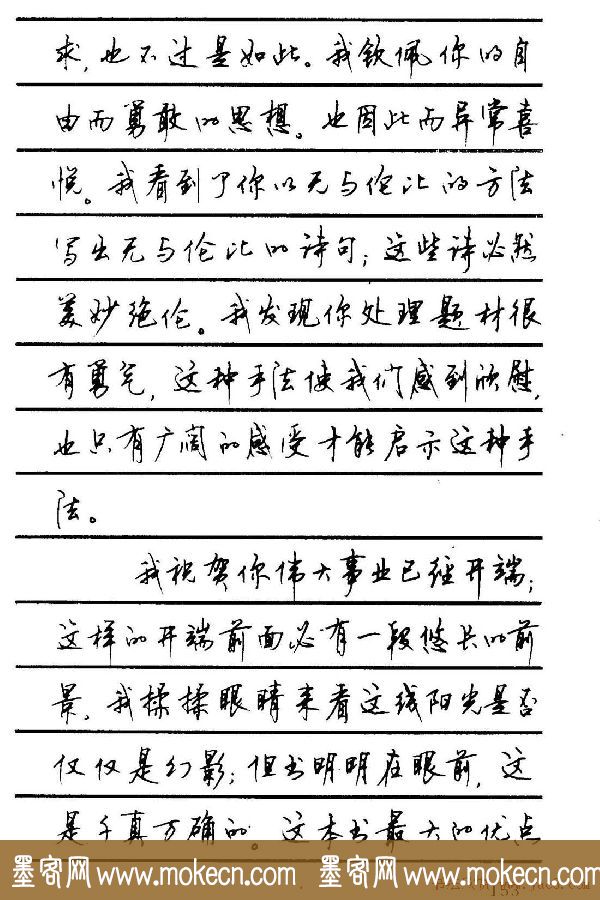 求,也不过是如此。我钦佩你的自
由而勇敢的思想。也因此而异常喜
悦。我看到了你以无与伦比的方法
写出无与伦比的诗句;这些诗必然
美妙绝伦。我发现你处理题材很
有勇气,这种手法使我们感到欣慰,
也只有广阔的感受才能启示这种手
法。
我祝贺你伟大事业已经开端;
这样的开端前面必有一段悠长的前
景,我揉揉眼睛来看这线阳光是否
仅仅是幻影;但书明明在眼前,这
是千真万确的。这本书最大的优点
墨客网 www.mokecn.com 墨客网 www.mokecn.com